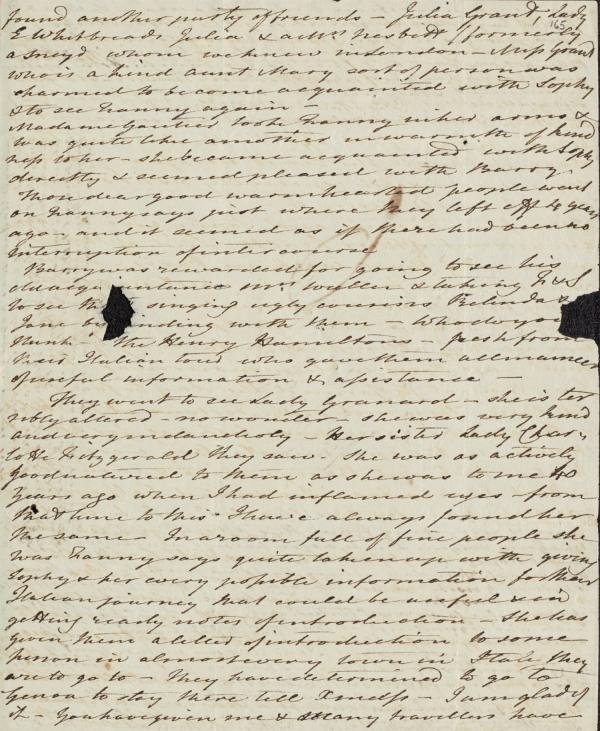 found another party of friends - Julia Grant, Lady
165
E Whitbreads Julia & a Mrs Nesbitt formerly
a Sneyd whom we knew in London - Miss Grant
who is a kind aunt Mary sort of person was
charmed to become acquainted with Sophy
& to see Fanny again -
Madame Gautier took Fanny in her arms &
was quite like a mother in warmth of kind
ness to her - she became acquainted with Sophy
directly & seemed pleased with Barry.
Those dear good warmhearted people went
on Fanny says just where they left off 4 years
ago and it seemed as if there had been no
interruption of intercourse
Barry was rewarded for going to see his
old acquaintance Mrs Waller & taking F & S
to see the singing ugly cousins Belinda &
Jane by with them - who do you
think - The Henry Hamiltons - fresh from
their Italian tour who gave them all manner
of useful information & assistance -
They went to see Lady Granard - she is ter
ribly altered - no wonder - she was very kind
and very melancholy - Her sister Lady Char,
lotte Fitzgerald they saw. She was as actively
goodnatured to them as she was to me
years ago when I had inflamed eyes - from
that time to this I have always found her
the same - In a room full of fine people she
was Fanny says quite taken up with giving
Sophy & her every possible information for their
Italian journey that could be useful & in
getting ready notes of introduction - She has
given them a letter of introduction to some
person in almost every town in Italy they
are to go to - They have determined to go to
Genoa to stay there till Xmass - I am glad of
it - You have given me & many travellers have